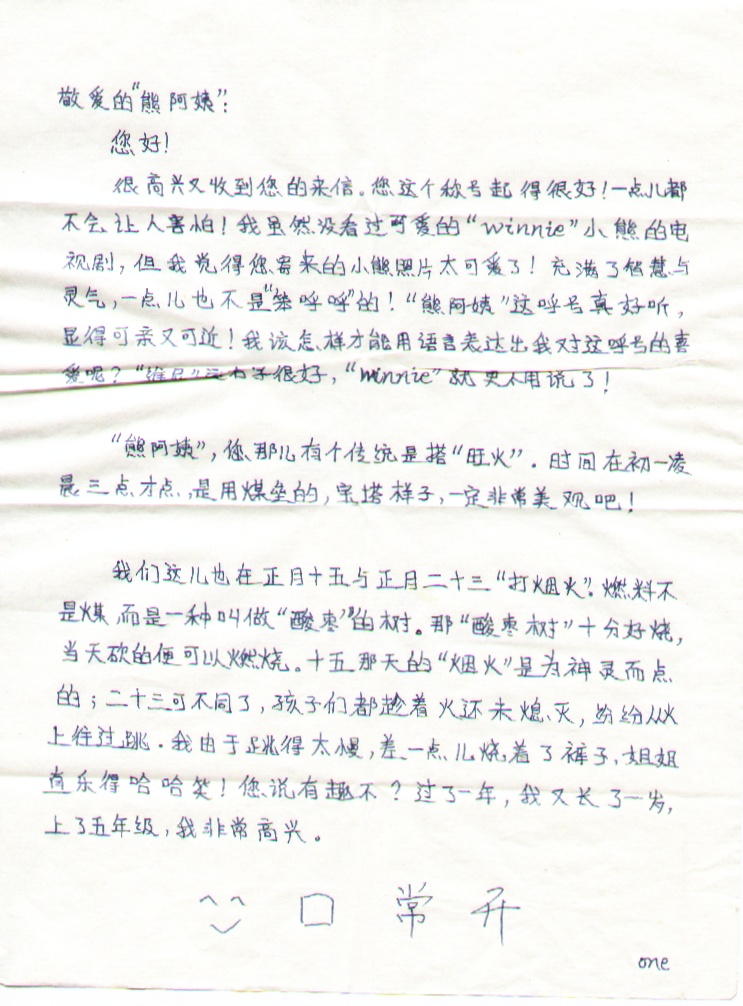 敬爱的"熊阿姨":
您好!
很高兴又收到您的来信。您这个称号起得很好!一点儿都
不会让人害怕!我虽然没看过可爱的"winnie"小熊的电
视剧,但我觉得您寄来的小熊照片太可爱了!充满了智慧与
灵气,一点儿也不是"笨呼呼"的!"熊阿姨"这呼号真好听,
显得可亲又可近!我该怎样才能用语言表达出我对这呼号的喜
爱呢?"维尼"这名字很好,"winnie"就更不用说了!
"熊阿姨",您那儿有个传统是搭"旺火".时间在初一凌
晨三点才点,是用煤垒的,宝塔样子,一定非常美观吧!
我们这儿也在正月十五与正月二十三"打烟火".燃料不
是煤,而是一种叫做"酸枣"的树。那"酸枣树"十分好烧,
当天砍的便可以燃烧。十五那天的"烟火"是为神灵而点
的;二十三可不同了,孩子们都趁着火还未熄灭,纷纷从火
上往过跳.我由于跳得太慢,差一点儿烧着了裤子,姐姐
直乐得哈哈笑!您说有趣不?过了一年,我又长了一岁,
上了五年级,我非常高兴。
口常开
one